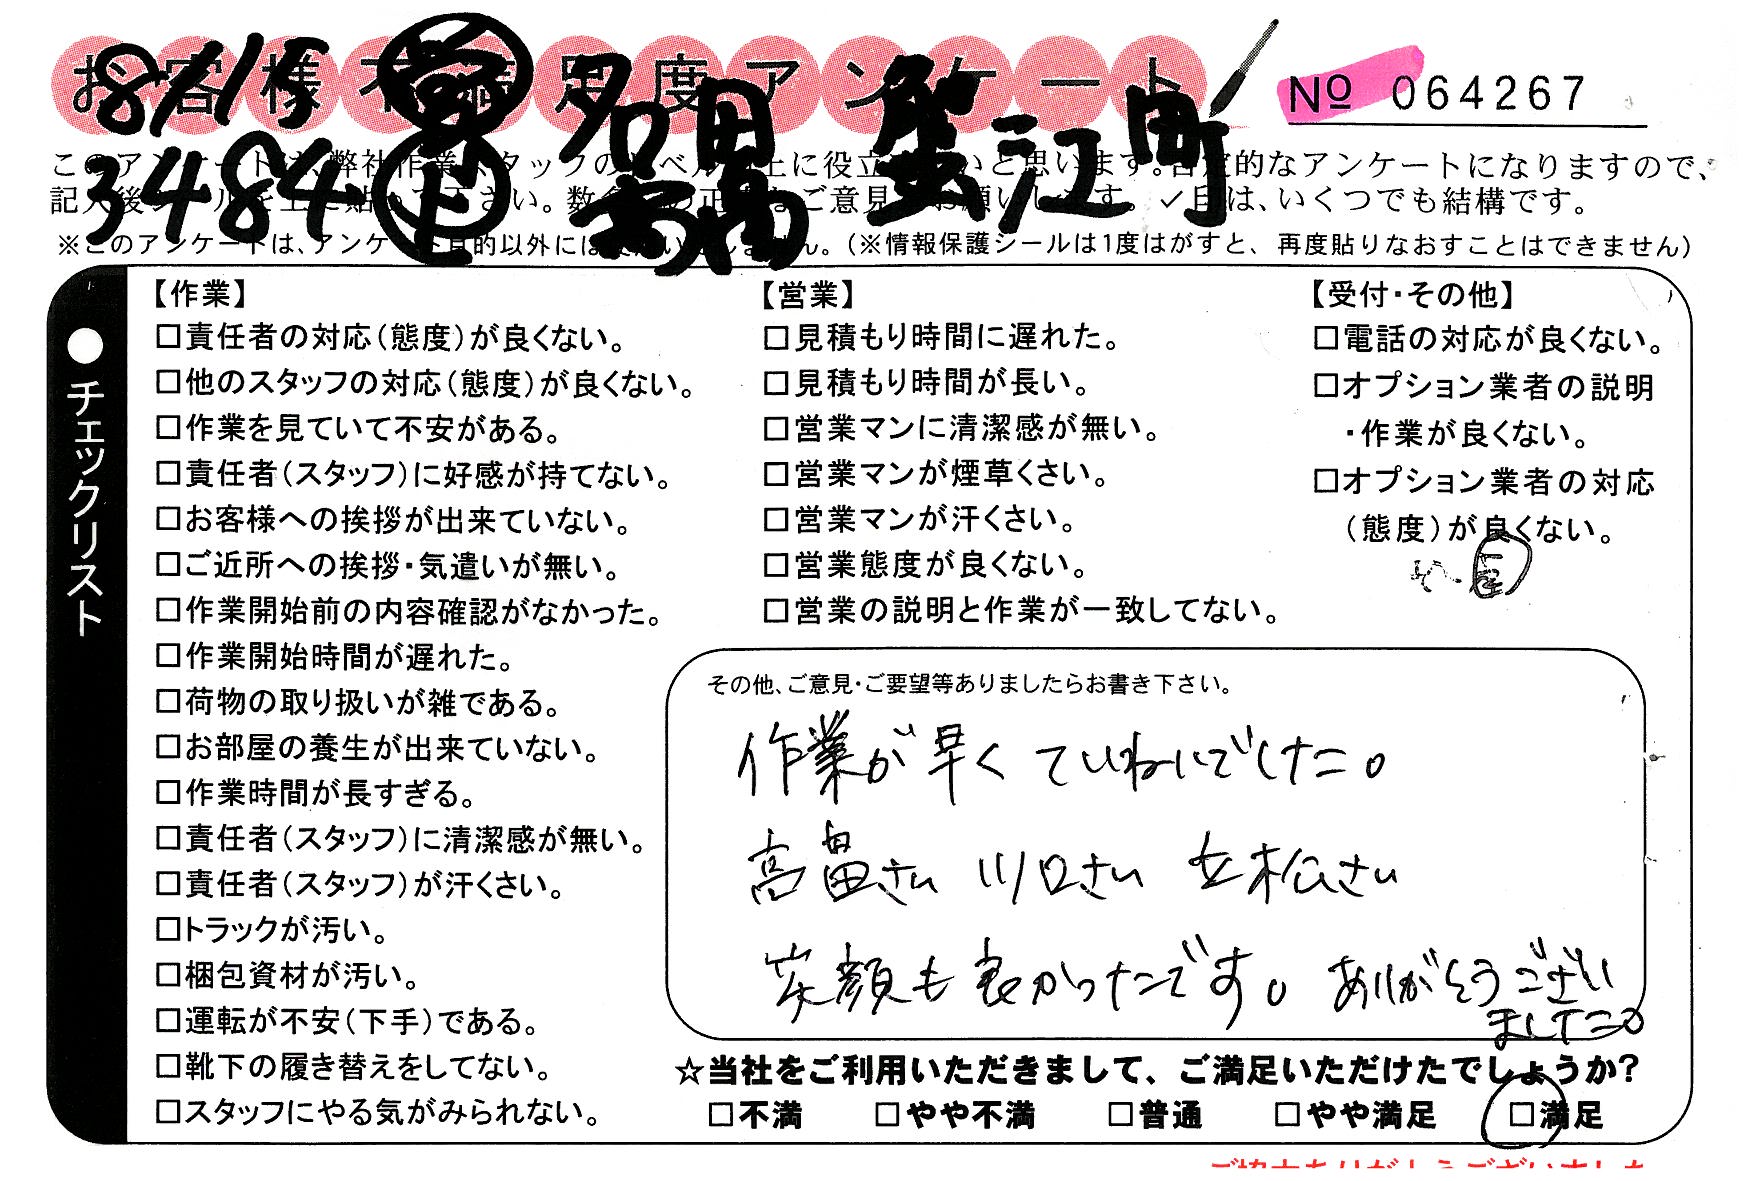 お客様不満足度アンケート
№ 064267
8/15
3484
蟹江町
このアンケートは、弊社作業スタッフのレベル向上に役立てたいと思います。否定的なアンケートになりますので、
記入後シールを上に貼って下さい。数多くの正直なご意見をお願いします。✓印は、いくつでも結構です。
※このアンケートは、アンケート目的以外には使用いたしません。(※情報保護シールは1度はがすと、再度貼りなおすことはできません)
●チェックリスト
【作業】
□責任者の対応(態度)が良くない。
□他のスタッフの対応(態度)が良くない。
□作業を見ていて不安がある。
□責任者(スタッフ)に好感が持てない。
□お客様への挨拶が出来ていない。
□ご近所への挨拶・気遣いが無い。
□作業開始前の内容確認がなかった。
□作業開始時間が遅れた。
□荷物の取り扱いが雑である。
□お部屋の養生が出来ていない。
□作業時間が長すぎる。
□責任者(スタッフ)に清潔感が無い。
□責任者(スタッフ)が汗くさい。
□トラックが汚い。
□梱包資材が汚い。
□運転が不安(下手)である。
□靴下の履き替えをしてない。
□スタッフにやる気がみられない。
【営業】
□見積もり時間に遅れた。
□見積もり時間が長い。
□営業マンに清潔感が無い。
□営業マンが煙草くさい。
□営業マンが汗くさい。
□営業態度が良くない。
□営業の説明と作業が一致してない。
【受付・その他】
□電話の対応が良くない。
□オプション業者の説明
・作業が良くない。
□オプション業者の対応
(態度)が良くない。
その他、ご意見・ご要望等ありましたらお書き下さい。
作業が早くていねいでした。
高畠さん 川口さん 立松さん
笑顔も良かったです。ありがとうござい
ました。
☆当社をご利用いただきまして、ご満足いただけたでしょうか?
□不満 □やや不満 □普通 □やや満足 □満足
ご協力ありがとうございました